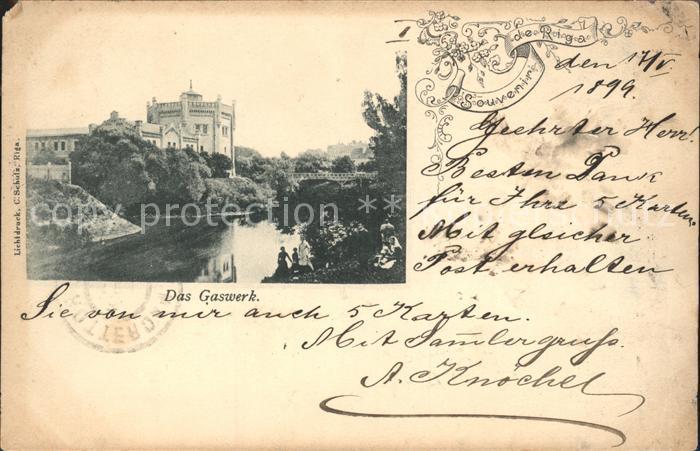 Souvenir de Riga
den 17/V
1899.
Geehrter Herr!
Besten Dank
für Ihre 5 Karten,
Mit gleicher
Post erhalten
Sie von mir auch 5 Karten.
Mit Sammlergruß.
A. Knöchel
Das Gaswerk.
Lichtdruck. C. Schulz, Riga.
ROTTERD